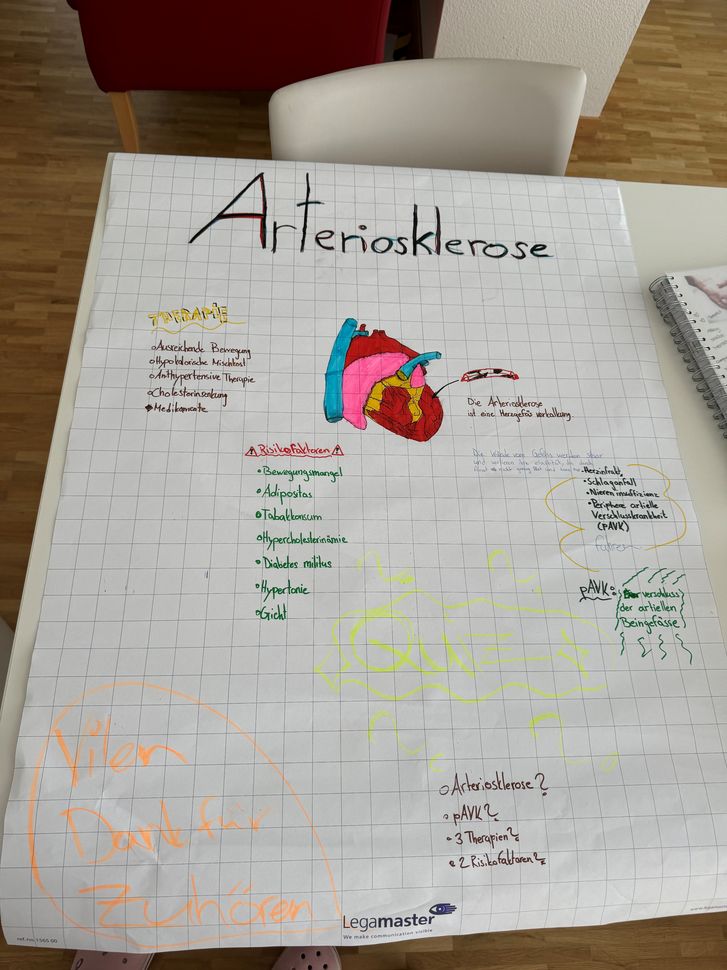 Arteriosklerose
THERAPIE
Ausreichende Bewegung
Hypokalorische Mischkost
Anthypertensive Therapie
Cholestorinsenkung
Medikamente
Die Arteriosklerose
ist eine Herzgefäs verkalkung.
Risikofaktoren
Bewegungsmangel
Adipositas
Tabakkonsum
Hypercholesterinämie
Diabetes militus
Hypertonie
Gicht
Die Wände vom Gefäss werden starr
und verlieren ihre elastizität, die
nicht
Herzinfrakt,
Schlaganfall
Niereninsuffizienz
Periphere artielle
Verschlusskrankheit
(PAVK)
führen
pAVK:
verschluss
der artiellen
Beingefässe
QUIZ
Vilen
Dank für
Zuhören
Arteriosklerose?
pAVK?
3 Therapien?
2 Risikofaktoren?
Legamaster
We make communication visible
ref.nr. 1565 00